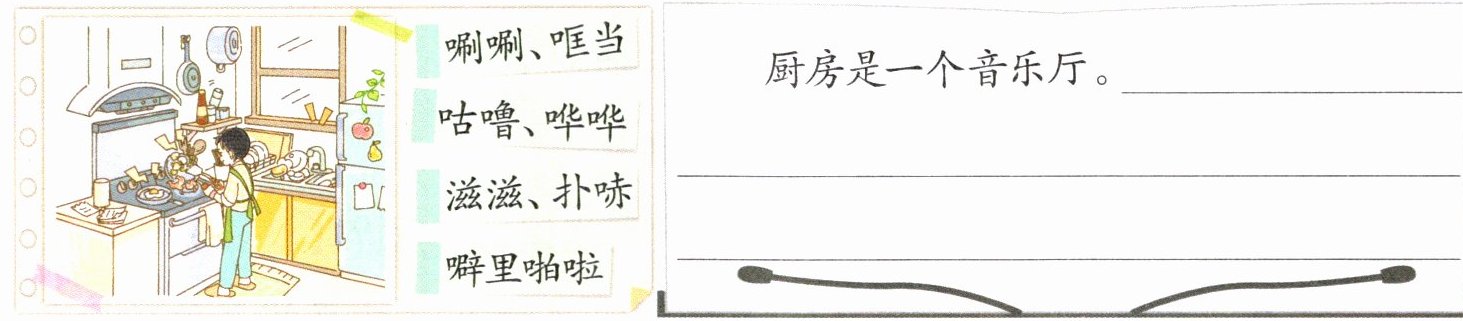 唰唰、哐当
咕噜、哗哗
滋滋、扑哧
噼里啪啦
厨房是一个音乐厅。